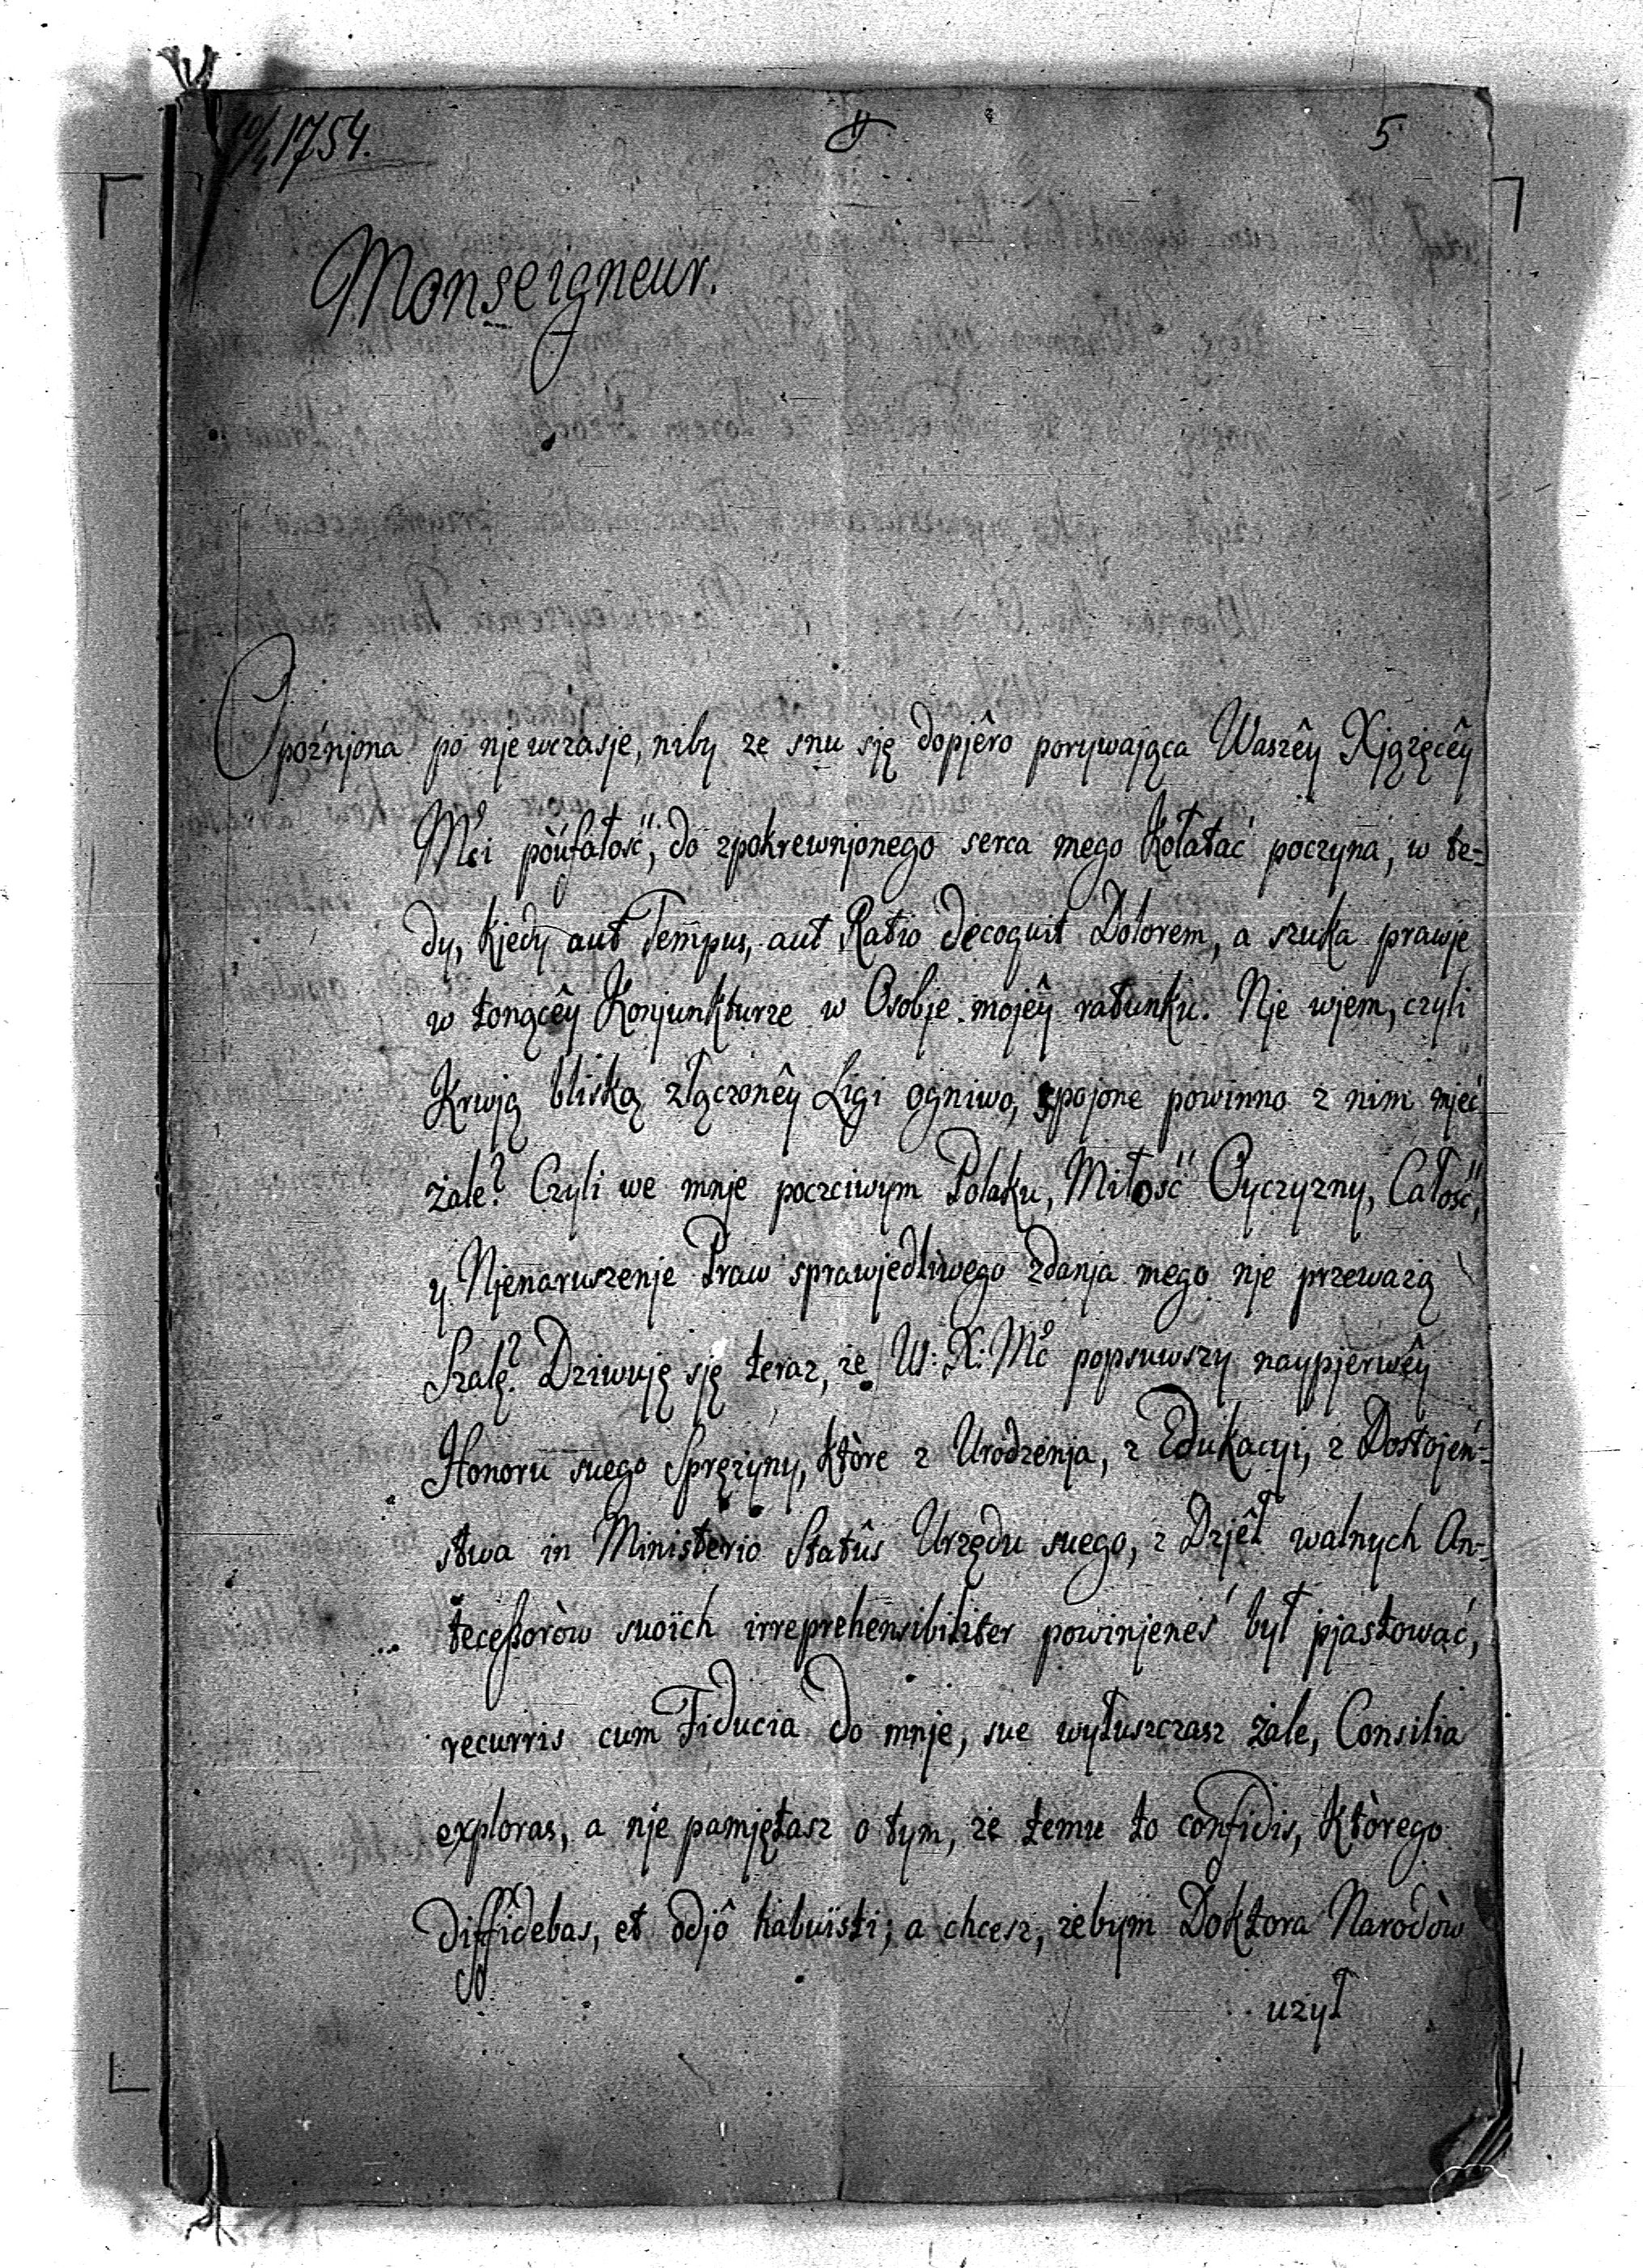 10/4 1754.
5
Monseigneur.
Opóźnjona po njewczasje, niby ze snu sję dopjêro porywająca Waszêy Xjązęcêy
Mći poûfałość, do zpokrewnjonego serca mego Kołatać poczyna, w te-
dy, kjedy aut Tempus, aut Ratio decoquit Dolorem, a szuka prawje
w tonącêy Konjunkturze w Osobje mojêy ratunku. Nje wjem, czyli
Krwją bliską złączonêy Ligi ogniwo, spojone powinno z nim mjeć
żale? Czyli we mnje poczciwym Polaku, Miłość Oyczyzny, Całość,
y Njenaruszenje Praw sprawjedliwego zdanja mego nje przeważą
Szalę? Dziwuję sję teraz, że W: X: Mć popsuwszy naypjerwêy
Honoru suego Sprężyny, Które z Urodzenja, z Edukacyi, z Dostojeń-
stwa in Ministerio Statûs Urzędu suego, z Dzjêł walnych An-
teceßoròw suoich irreprehensibiliter powinjeneś był pjastować,
recurris cum Fiducia do mnje, sue wyłuszczasz żale, Consilia
exploras, a nje pamjętasz o tym, że temu to confidis, Ktòrego
diffidebas, et odjô habuisti; a chcesz, żebym Doktora Narodòw
użył